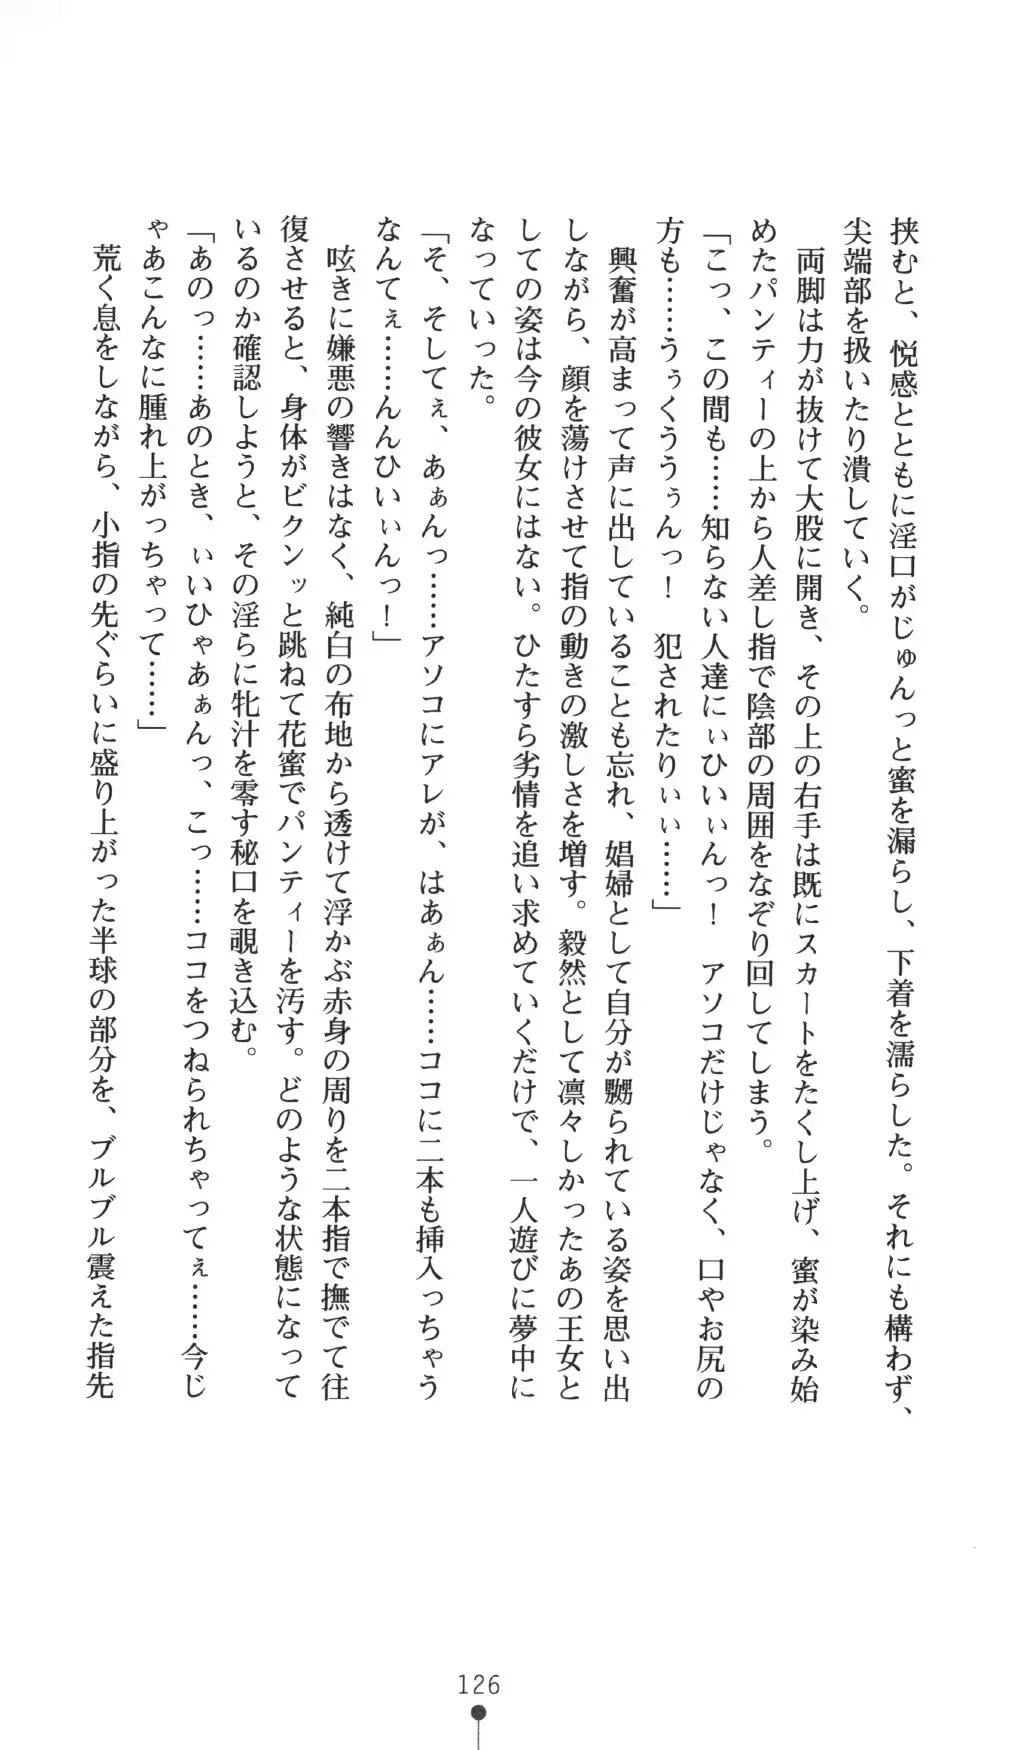 挟むと、悦感とともに淫口がじゅんっと蜜を漏らし、下着を濡らした。それにも構わず、
尖端部を扱いたり潰していく。
　両脚は力が抜けて大股に開き、その上の右手は既にスカートをたくし上げ、蜜が染み始
めたパンティーの上から人差し指で陰部の周囲をなぞり回してしまう。
「こっ、この間も……知らない人達にぃひいぃんっ！　アソコだけじゃなく、口やお尻の
方も……うぅくううぅんっ！　犯されたりぃぃ……」
　興奮が高まって声に出していることも忘れ、娼婦として自分が嬲られている姿を思い出
しながら、顔を蕩けさせて指の動きの激しさを増す。毅然として凛々しかったあの王女と
しての姿は今の彼女にはない。ひたすら劣情を追い求めていくだけで、一人遊びに夢中に
なっていった。
「そ、そしてぇ、あぁんっ……アソコにアレが、はあぁん……ココに二本も挿入っちゃう
なんてぇ……んんひいぃんっ！」
　呟きに嫌悪の響きはなく、純白の布地から透けて浮かぶ赤身の周りを二本指で撫でて往
復させると、身体がビクンッと跳ねて花蜜でパンティーを汚す。どのような状態になって
いるのか確認しようと、その淫らに牝汁を零す秘口を覗き込む。
「あのっ……あのとき、ぃいひゃあぁんっ、こっ……ココをつねられちゃってぇ……今じ
ゃあこんなに腫れ上がっちゃって……」
　荒く息をしながら、小指の先ぐらいに盛り上がった半球の部分を、ブルブル震えた指先
126